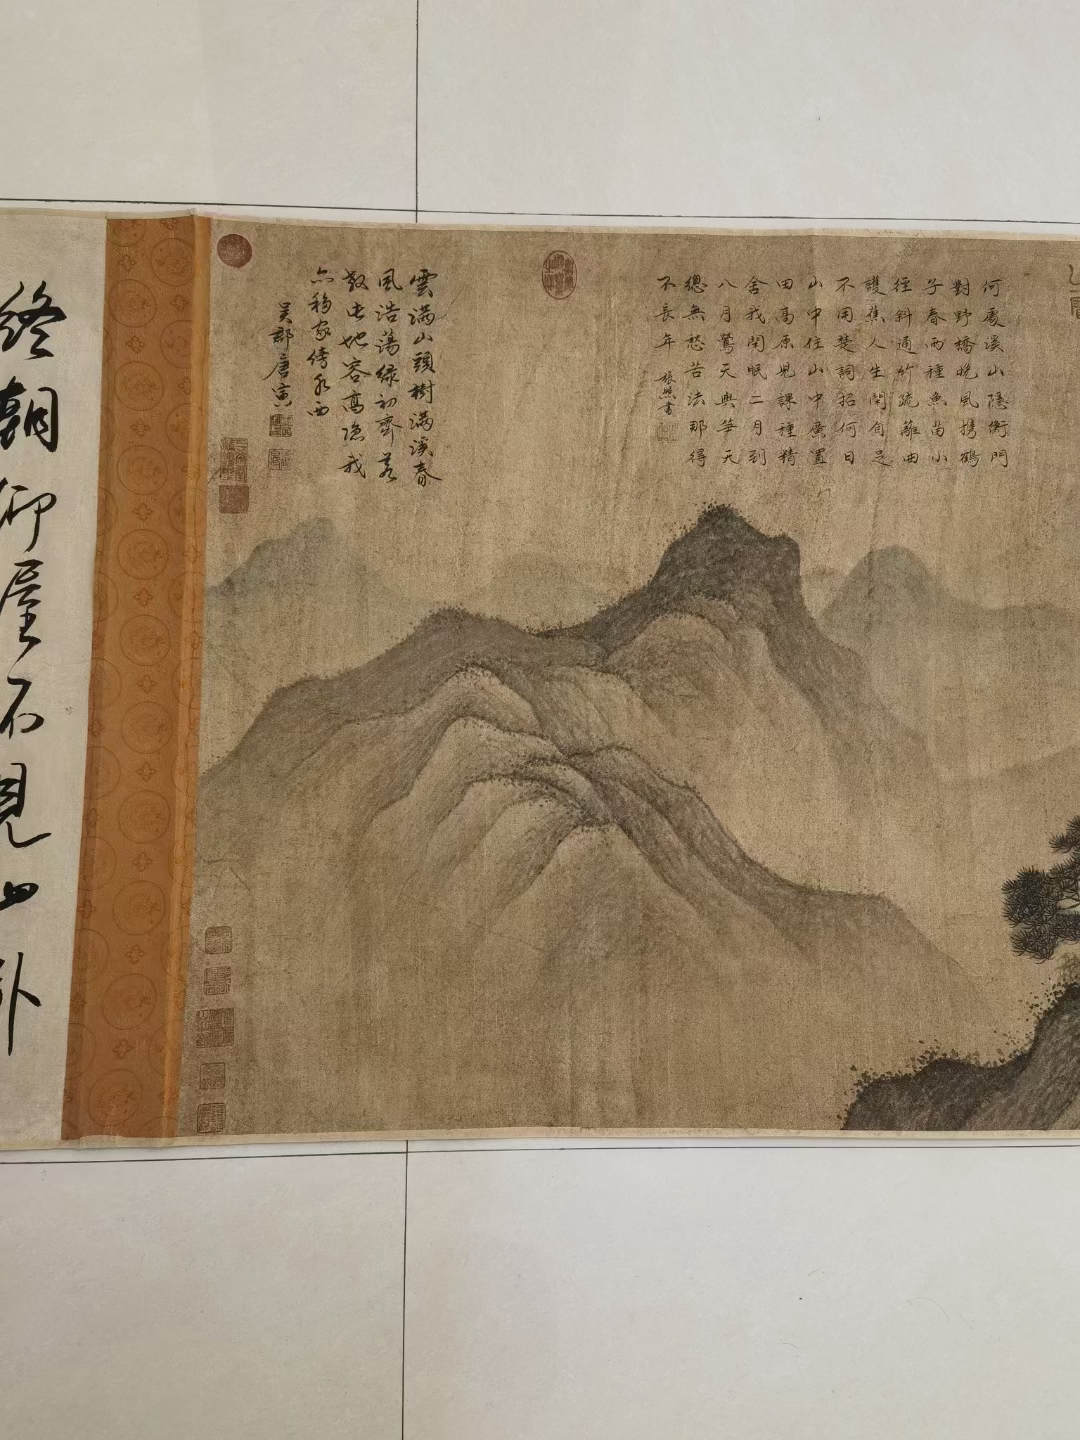 何處溪山隱衡門
對野橋晚風攜鶴
子春雨種魚苗小
徑斜通竹疏籬曲
護蕉人生閑自足
不用楚詞招何日
山中住山中廣置
田高原兒課種精
舍我閑眠二月到
八月鶯天與筆天
總無愁苦法那得
不長年 張照書
雲滿山頭樹滿溪春
風浩蕩綠初齊若
教此地容高隱我
亦移家傍水西
吳郡唐寅
終朝仰屋不見山卧